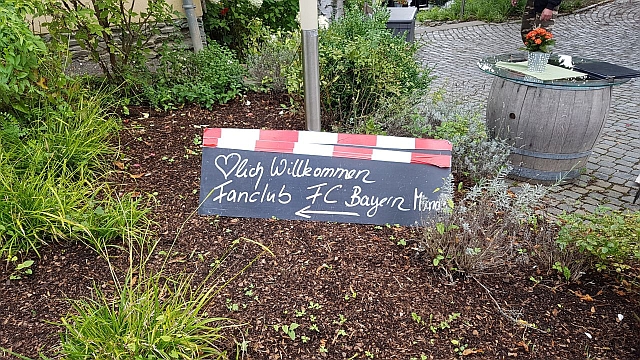 ♡lich Willkommen
Fanclub FC Bayern
←